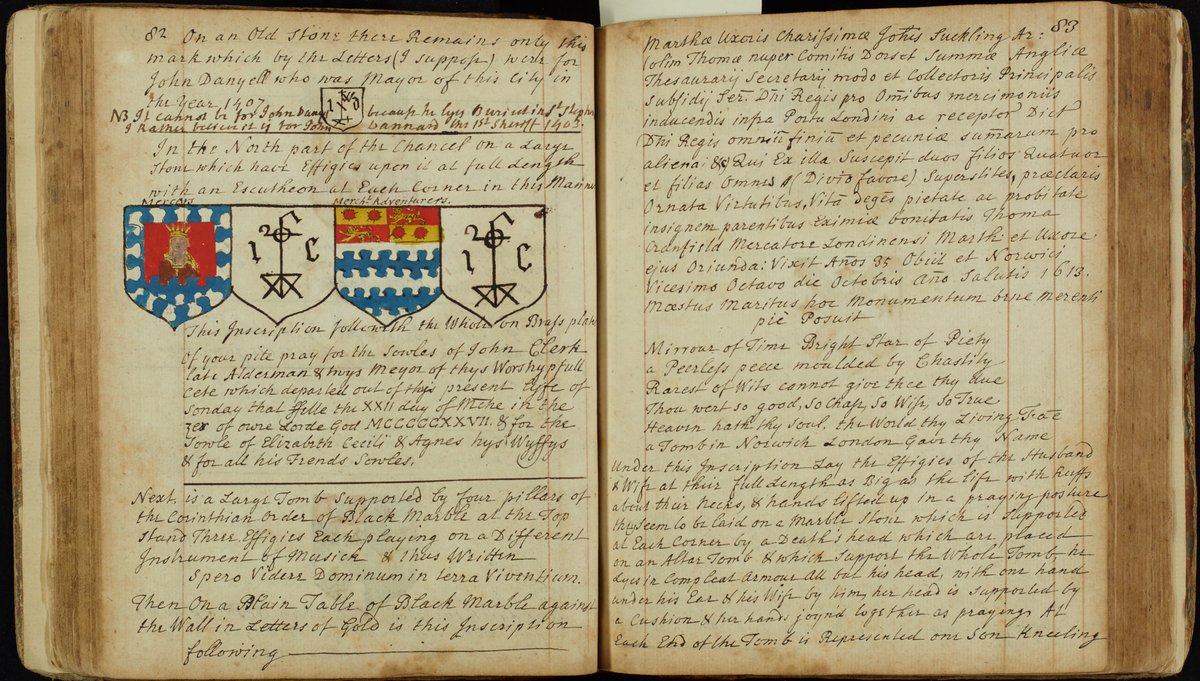 82
On an Old Stone there Remains only this
mark which by the Letters (I suppose) were for
John Danyell who was Mayor of this City in
the Year 1407.
NB It cannot be for John Danyell because he lyes Buried in St Stephens
I Rather believe it is for John Bannard the 1st Sheriff 1403.
In the North part of the Chancel on a Large
Stone which have Effigies upon it at full Length
with an Escutheon at Each Corner in this Manner
Mercers Mercht Adventurers.
I C I C
This Inscription followeth the Whole on Brass plate
Of your pite pray for the Sowles of John Clerk
late Alderman & twys Meyor of thys Worshypfull
Cete which departed out of thys present Lyfe of
Sonday that ffelle the XXII day of in the
zer of owre Lorde God MCCCCCXXVII. & for the
Sowle of Elizabeth Cecili & Agnes hys Wyffys
& for all his Frends Sowles.
Next is a Large Tomb Supported by four pillars of
the Corinthian Order of Black Marble at the Top
Stand Three Effigies Each playing on a Different
Instrument of Musick & thus Written
Spero Videre Dominum in terra Viventium.
Then On a Plain Table of Black Marble against
the Wall in Letters of Gold is this Inscription
following
83
Marthæ Uxoris Charissimæ Johis Suckling Ar:
olim Thomæ nuper Comitis Dorset Summæ Angliæ
Thesaurarij Secretarij modo et Collectoris Principalis
Subsidij Ser: Dni Regis pro Omibus mercimoniis
inducendis infra Portu Londini ac receptor Dict
Dni Regis omniu finiu et pecuniæ sumarum pro
alienai & Qui Ex illa Suscepit duos filios Quatuor
et filias Omnes (Divino favore) Superstites, præclaris
Ornata Virtutibus, Vita degēs pietate ac probitate
insignem parentibus Eximiæ bonitatis Thoma
Cranfield Mercatore Londinensi Marth et Uxore
ejus Oriunda: Vixit Anos 35 Obiit et Norwic
Vicesimo Octavo die Octobris Año Salutis 1613.
Mæstus Maritus hoc Monumentum bene Merenti
piè Posuit
Mirrour of Time Bright Star of Piety
a Peerless peece moulded by Chastity
Rarest of Wits cannot give thee thy due
Thou wert so good, So Chast, So Wise, So True
Heaven hath thy Soul. the World thy Living Fame
a Tomb in Norwich London Gave thy Name
Under this Inscription Lay the Effigies of the Husband
& Wife at their full Length as Big as the life with Ruffs
about their Necks, & hands lifted up in a praying posture
they Seem to be laid on a Marble Stone which is Supported
at Each Corner by a Death's head which are placed
on an Altar Tomb & which Support the Whole Tomb he
Lyes in Compleat Armour All but his head, with one hand
under his Ear & his Wife by him, her head is Supported by
a Cushion & her hands joyn'd together as praying, At
Each End of the Tomb is Represented one Son Kneeling